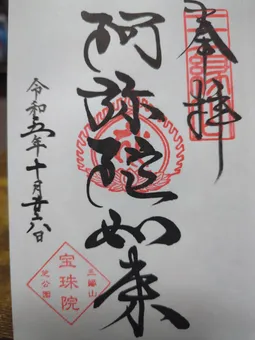 奉拝
阿弥陀如来
令和五年十月廿八日
三縁山
宝珠院
芝公園